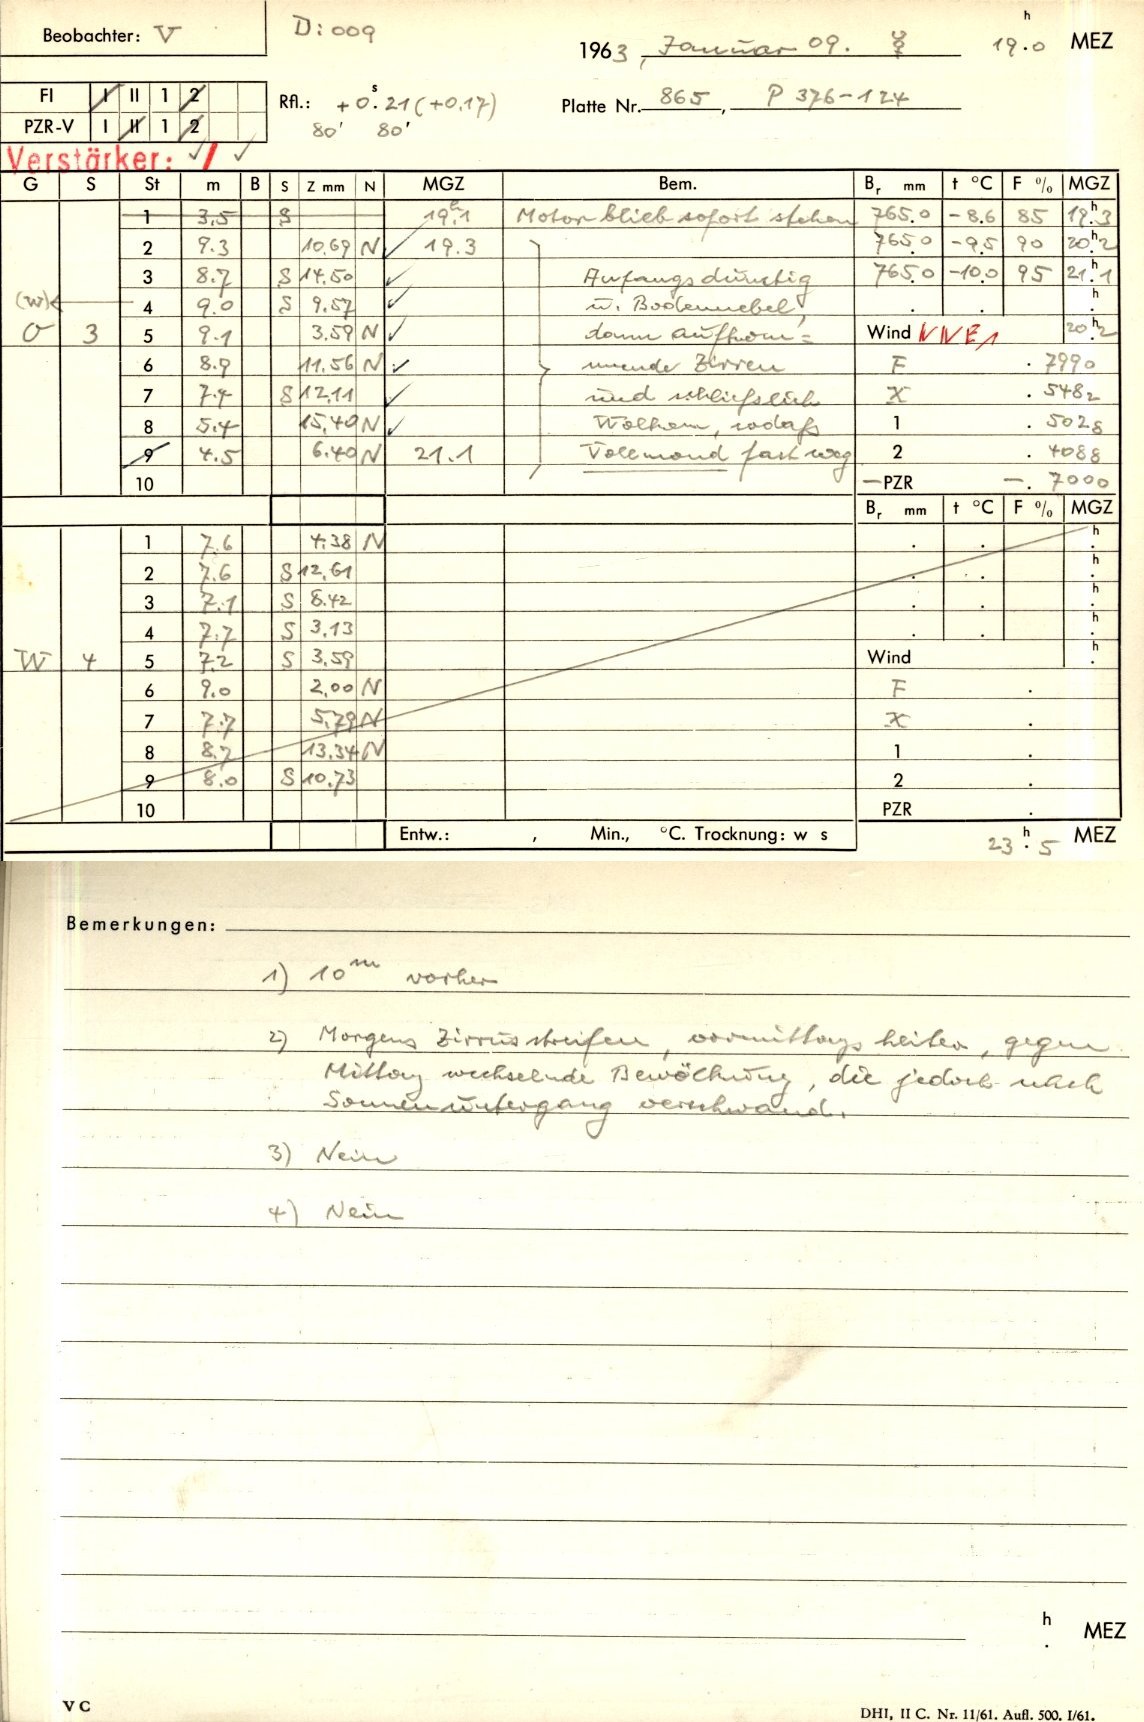 Beobachter: V
D: 009
1963, Januar 09. ☿ 19 h . 0 MEZ
FI I II 1 2
PZR-V I II 1 2
Rfl.: +0 s . 21 (+0.17)
80' 80'
Platte Nr. 865, P 376-124
Verstärker: ✓ / ✓
G S St m B S Z mm N MGZ Bem. Br mm t °C F % MGZ
1 3.5 S 19 h . 1 Motor blieb sofort stehen 765.0 -8.6 85 19 h . 3
2 9.3 10,69 N ✓ 19.3 765.0 -9.5 90 20 h . 2
3 8.7 S 14,50 ✓ Anfangs dunstig 765.0 -10.0 95 21 h . 1
(W) 4 9.0 S 9,57 ✓ u. Bodennebel, . . h .
O 3 5 9.1 3,59 N ✓ dann aufkom= Wind NNE 1 20 h . 2
6 8.9 11,56 N ✓ mende Zirren F . 7990
7 7.4 S 12,11 ✓ und schließlich X . 5482
8 5.4 15,40 N ✓ Wolken, sodaß 1 . 5028
9 4.5 6.40 N 21.1 Vollmond fast weg 2 . 4088
10 -PZR -. 7000
Br mm t °C F % MGZ
1 7.6 4,38 N . . h .
2 7.6 S 12,61 . . h .
3 7.1 S 8.42 . . h .
4 7.7 S 3,13 . . h .
W 4 5 7.2 S 3,59 Wind h .
6 9.0 2,00 N F .
7 7.7 5,79 N X .
8 8.7 13,34 N 1 .
9 8.0 S 10,73 2 .
10 PZR .
Entw.: , Min., °C. Trocknung: w s 23 h . 5 MEZ
Bemerkungen:
1) 10 m vorher
2) Morgens Zirrusstreifen, vormittags heiter, gegen
Mittag wechselnde Bewölkung, die jedoch nach
Sonnenuntergang verschwand.
3) Nein
4) Nein
h . MEZ
V C
DHI, II C. Nr. 11/61. Aufl. 500. I/61.